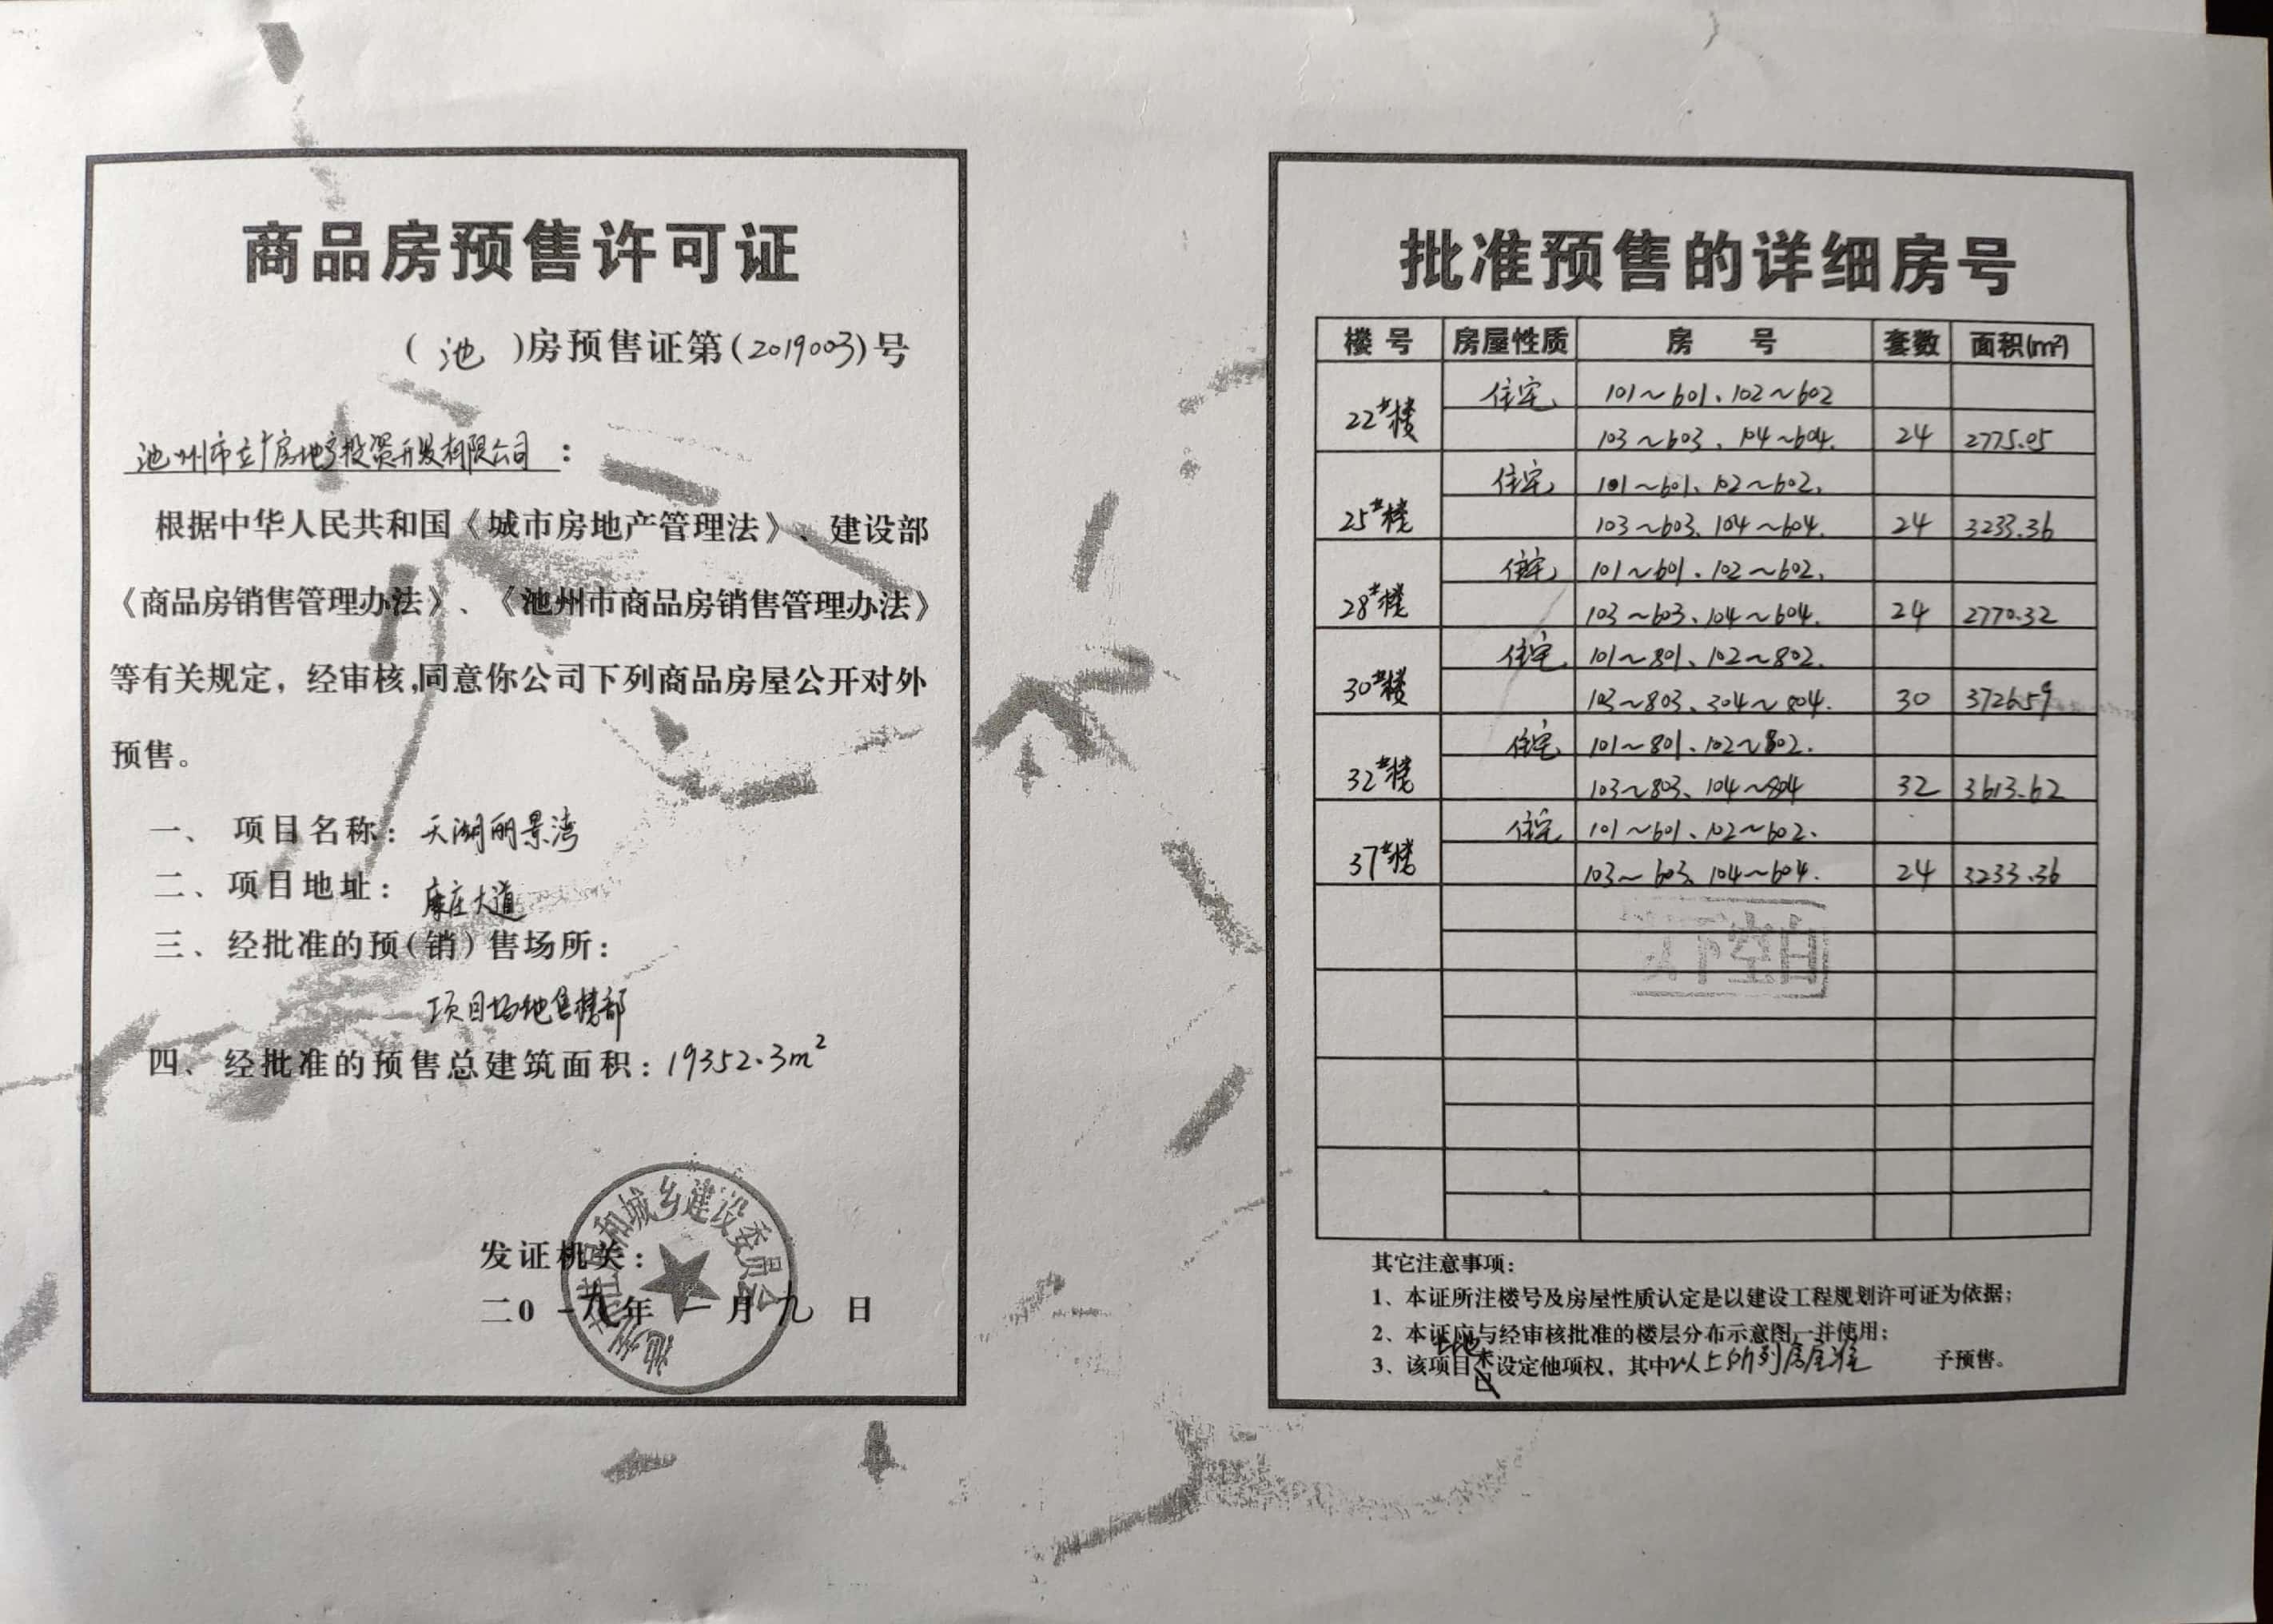 商品房预售许可证
(池)房预售证第(2019003)号
池州市立广房地产投资开发有限公司：
根据中华人民共和国《城市房地产管理法》、建设部
《商品房销售管理办法》、《池州市商品房销售管理办法》
等有关规定，经审核,同意你公司下列商品房屋公开对外
预售。
一、项目名称：天湖丽景湾
二、项目地址：康庄大道
三、经批准的预(销)售场所：
项目场地售楼部
四、经批准的预售总建筑面积：19352.3m²
发证机关：
池州市住房和城乡建设委员会
二0一九年一月九日
批准预售的详细房号
楼号 房屋性质 房号 套数 面积(m²)
22#楼 住宅 101~601、102~602
103~603、104~604. 24 2775.05
25#楼 住宅 101~601、102~602.
103~603、104~604. 24 3233.36
28#楼 住宅 101~601、102~602.
103~603、104~604. 24 2770.32
30#楼 住宅 101~801、102~802.
103~803、304~804. 30 3726.59
32#楼 住宅 101~801、102~802.
103~803、104~804 32 3613.62
37#楼 住宅 101~601、102~602.
103~603、104~604. 24 3233.36
以下空白
其它注意事项：
1、本证所注楼号及房屋性质认定是以建设工程规划许可证为依据；
2、本证应与经审核批准的楼层分布示意图一并使用；
3、该项目土地未设定他项权，其中以上所列房屋准予预售。